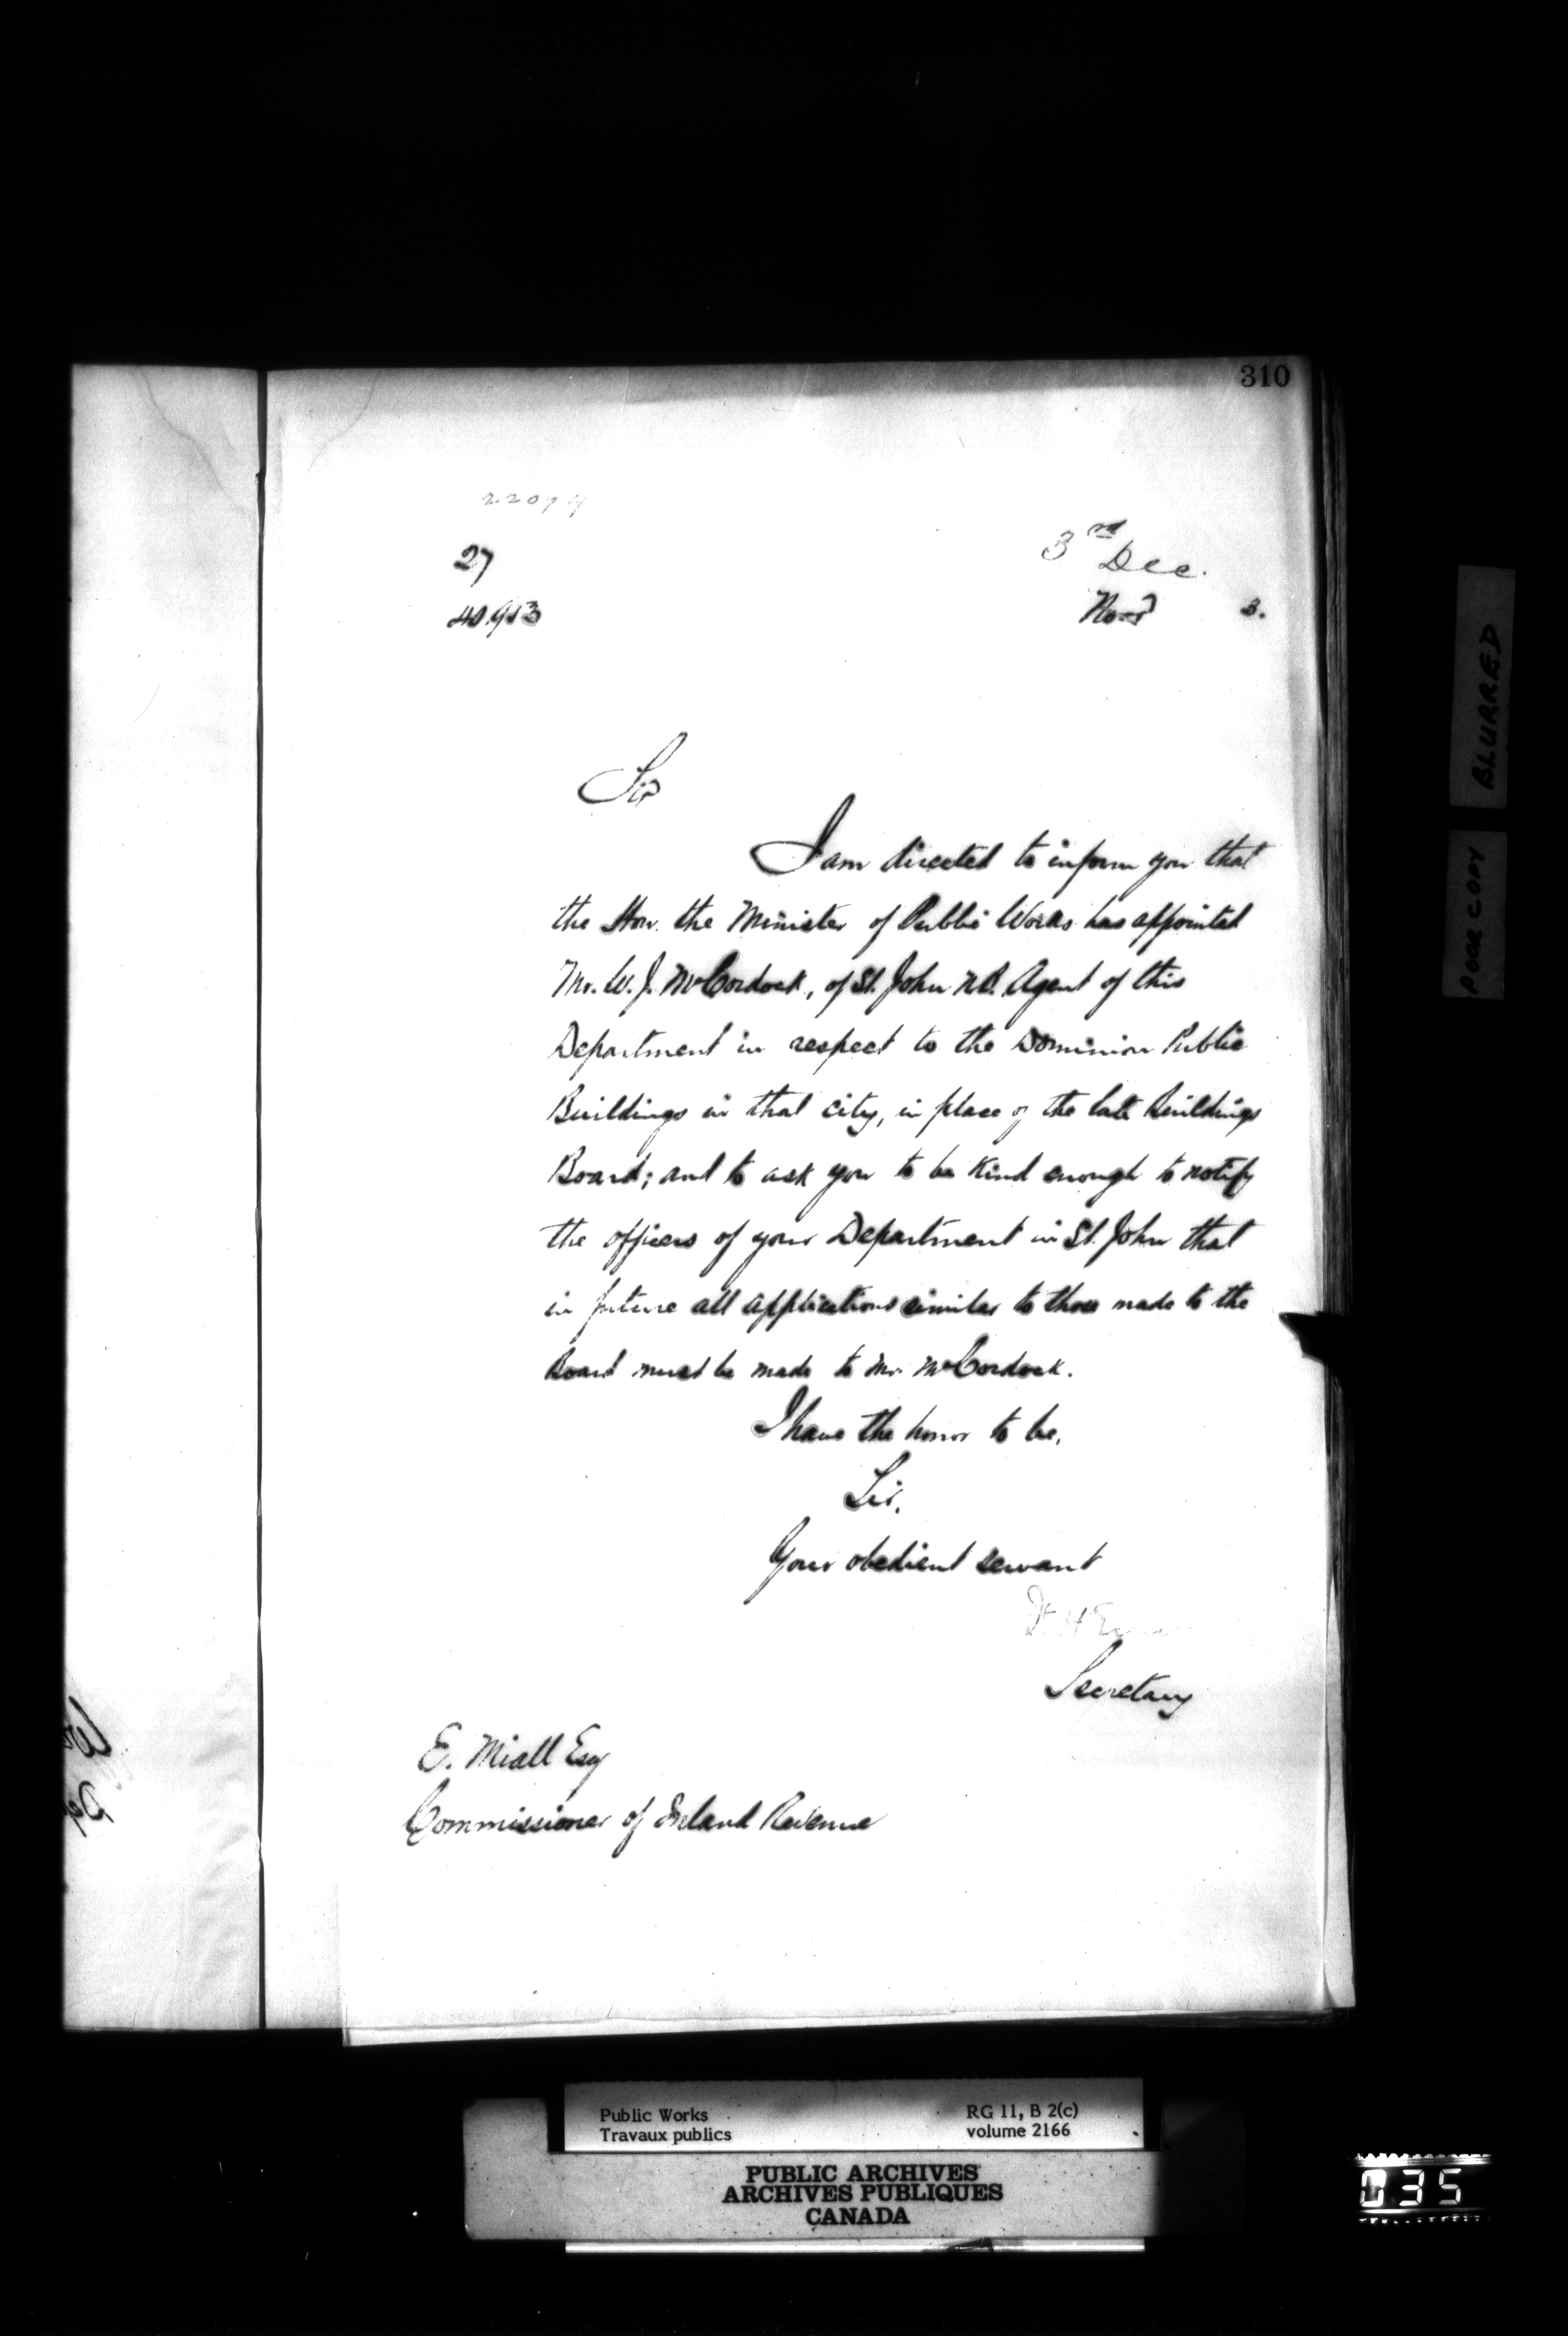 310
22094
27
40.913
3rd Dec.
Novr 3.
Sir
I am directed to inform you that
the Hon. the Minister of Public Works has appointed
Mr. W. J. McCordock, of St. John N.B. Agent of this
Department in respect to the Dominion Public
Buildings in that city, in place of the late Buildings
Board; and to ask you to be kind enough to notify
the officers of your Department in St. John that
in future all applications similar to those made to the
Board must be made to Mr. McCordock.
I have the honor to be,
Sir,
Your obedient servant
Secretary
E. Miall Esq
Commissioner of Inland Revenue
POOR COPY BLURRED
Public Works RG 11, B 2(c)
Travaux publics volume 2166
PUBLIC ARCHIVES
ARCHIVES PUBLIQUES
CANADA
035